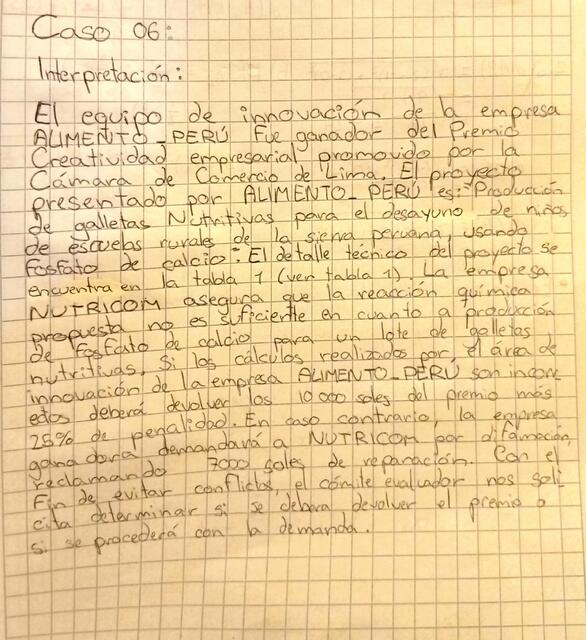 Caso 06:
Interpretación:
El equipo de innovación de la empresa
ALIMENTO_PERÚ fue ganador del Premio
Creatividad empresarial promovido por la
Cámara de Comercio de Lima. El proyecto
presentado por ALIMENTO_PERÚ es: "Producción
de galletas Nutritivas para el desayuno de niños
de escuelas rurales de la sierra peruana, usando
fosfato de calcio": El detalle técnico del proyecto se
encuentra en la tabla 1 (ver tabla 1). La empresa
NUTRICOM asegura que la reacción química
propuesta no es suficiente en cuanto a producción
de fosfato de calcio para un lote de galletas
nutritivas. Si los cálculos realizados por el área de
innovación de la empresa ALIMENTO_PERÚ son incorr
ectos deberá devolver los 10000 soles del premio más
25% de penalidad. En caso contrario, la empresa
ganadora demandará a NUTRICOM por difamación,
reclamando 7000 soles de reparación. Con el
Fin de evitar conflictos, el cómite evaluador nos soli
cita determinar si se debera devolver el premio o
si se procederá con la demanda.